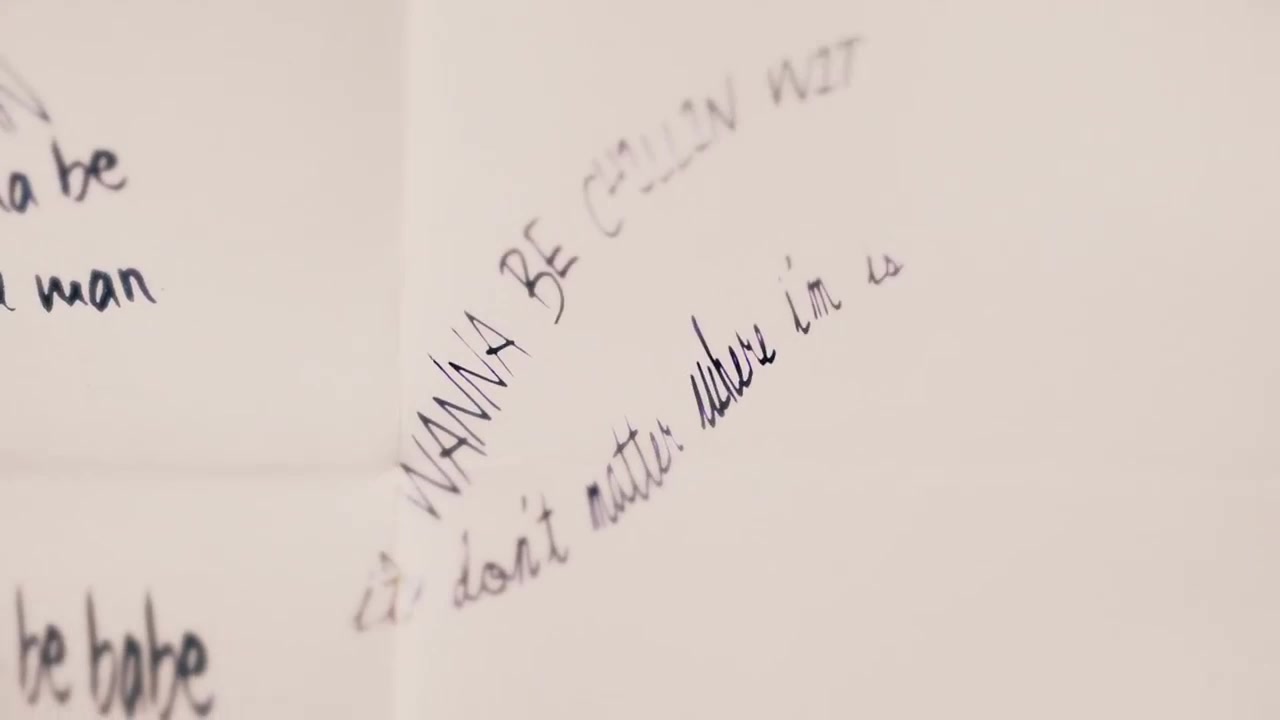 N
a be
man
WANNA BE CHILLIN WIT
it don't matter where i'm is
be babe